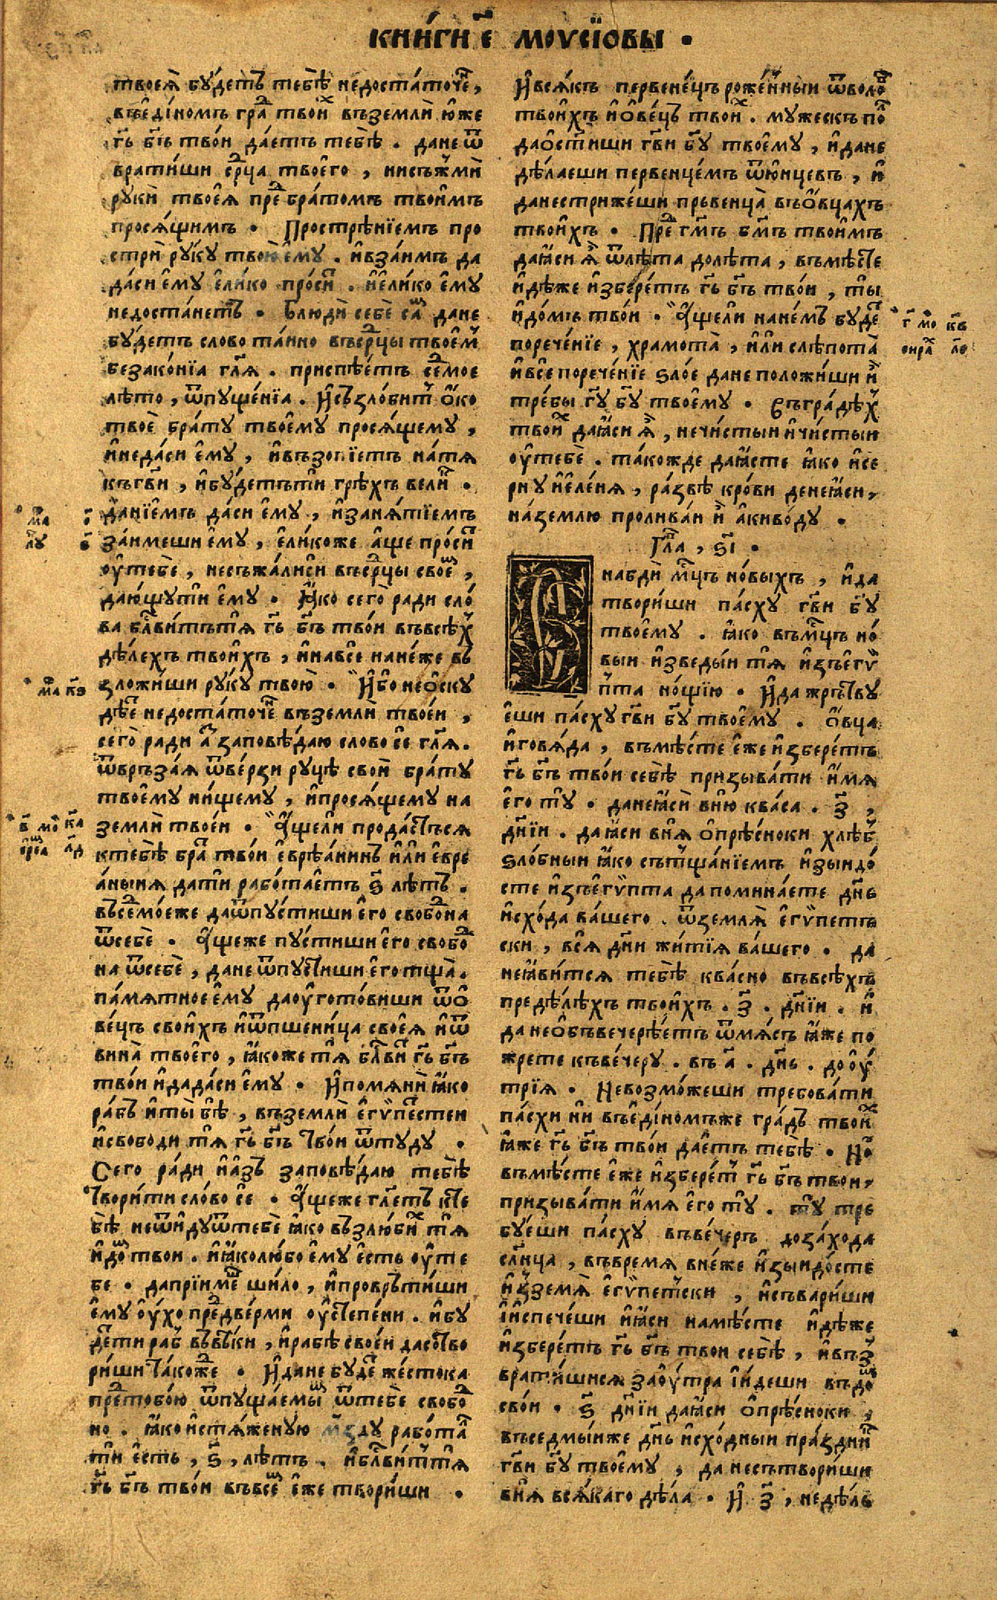 кни́ги е҃ моѵсїо́вы .
твоеа̀ бу́детъ тебѣ̀ недоста́точе,
въе҆ді́номъ гра твои въземлѝ ю҆́же
гь бгъ тво́и дае́тъ тебѣ̀ . дане ѿ
врати́ши срца твоего̀ , нисъжмѝ
рукѝ твоеѧ̀ пре бра́томъ твои́мъ
просѧ́щимъ . Простре́нїемъ про
стрѝ ру́ку твою̀ е҆му̀ . и҆взаи́мъ да
да́си е҆му̀ е҆ли́ко про́си . и҆е҆ли́ко е҆му̀
недоста́нетъ . Блюди́ себѐ са дане
бу́детъ сло́во та́ино въсрцы твое́м
безако́нїа глѧ . приспѣ́етъ се́мое
лѣ́то , ѿпуще́нїа . И҆съзло́битъ о҆́ко
твоѐ бра́ту твоему̀ просѧ́щему ,
и҆неда́си е҆му̀ , и҆възопїе́тъ натѧ̀
къгви , и҆бу́детъти грѣ́хъ вели .
Да́нїемъ да́си е҆му̀ , и҆занѧ́тїемъ
заи́меши е҆му̀ , е҆ли́коже а҆́ще про́си
оу҆тебѐ , несъжа́лиси въсрцы свое ,
даю́щути е҆му̀ . Ꙗ҆́ко сего̀ ра́ди сло́
ва блвитътѧ гь бгъ тво́и въвсѣ́х
дѣ́лехъ твои́хъ , и҆на́все на не́же въ
зложи́ши ру́ку твою̀ . И҆́бо неѡ҆ску
дѣ́е недоста́точе въземлѝ твое́и ,
сего̀ ра́ди а҆́ заповѣ́даю сло́во се глѧ.
ѿвръза́ѧ ѿве́рзи ру́цѣ свои бра́ту
твоему̀ ни́щему , и҆просѧ́щему на
землѝ твое́и . А҆́щели прода́стьсѧ
ктебѣ̀ бра тво́и е҆вре́анинъ и҆лѝ е҆вре
а́нынѧ да ти рабо́таетъ ѕ҃ лѣ́тъ .
въсемо́еже даѿпу́стиши е҆го̀ свобо́на
ѿсебѐ . А҆́щеже пу́стиши е҆го̀ свобо
на ѿсебѐ , дане ѿпу́стиши е҆го̀ тща̀.
па́мѧтное е҆му̀ даоу҆гото́виши ѿо҆
ве́цъ свои́хъ и҆ѿпшени́ца своеѧ̀ и҆ѿ
вина̀ твоего̀ , ꙗ҆́коже тѧ̀ блви гь бгъ
тво́и и҆дада́си е҆му̀ . И҆помѧнѝ ꙗ҆́ко
ра́бъ и҆ты̀ бѣ̀ , въземлѝ е҆гѵ́пестеи
и҆свободи тѧ̀ гь бгъ твои ѿту́ду .
Сего̀ ра́ди и҆а҆́зъ заповѣ́даю тебѣ̀
твори́ти сло́во се . А҆́щеже глетъ кте
бѣ̀ неѿи҆дуѿтебѐ ꙗ҆́ко възлюби тѧ̀
и҆до́ твои . и҆ꙗ҆́колюбо е҆му̀ е҆́сть оу҆те
бѐ . даприиме ши́ло , и҆провръ́тиши
е҆му̀ оу҆́хо предве́рми оу҆степе́ни . и҆бу
дети ра́б въвѣ́ки , и҆рабѣ̀ свое́и даство
ри́ши та́коже . И҆дане бу́де же́стока
претобо́ю ѿпуща́емы ѿтебѐ свобо
но . ꙗ҆́ко и҆стѧ́женую мзду рабо́та
ти е҆́сть , ѕ҃ , лѣ́тъ . и҆блви́ттѧ
гь бгъ тво́и въвсе е҆́же твори́ши .
И҆всѧ́къ первене́цъ роже́ныи ѿволо
твои́хъ и҆ѡ҆ве́цъ твои . му́жескъ по
даѡ҆сти́ши гви бу твоему̀ , и҆дане
дѣ́лаеши первенце́мъ ѿю́нцевъ , и҆
данестриже́ши прьвенца̀ въѡ҆вца́хъ
твои́хъ . Пре гмъ бмъ твои́мъ
даꙗ҆́си ѧ҆̀ ѿлѣ́та долѣ́та , въмѣ́сте
и҆дѣ́же и҆збере́тъ гь бгъ тво́и , ты̀
и҆до́мъ тво́и . А҆́щели нане́мъ бу́де
порече́нїе , храмота̀ , и҆́ли слѣпота̀
и҆всѐ порече́нїе ѕло́е дане положи́ши и
тре́бы гу бу твоему̀ . Въгра́дѣх
твои даꙗ҆́си ѧ҆̀ , нечи́стыи и҆чи́стыи
оу҆тебѐ . та́кожде даꙗ҆сте ꙗ҆́ко и҆се
рну и҆е҆ле́нѧ , ра́звѣ кро́ви денеꙗ҆си,
на́землю пролива́и и҆ а҆́киво́ду .
Гла , ѕ҃і .
Снабди́ мцъ но́выхъ , и҆да
твори́ши па́сху гви бу
твоему̀ . ꙗ҆́ко въмцъ но́
выи и҆зведы́и тѧ̀ и҆зъе҆гѵ́
пта но́щїю . И҆да жрству
е҆ши па́сху гви бу твоему̀ . ѡ҆́вца
и҆говѧ́да , въмѣ́сте е҆́же и҆збере́тъ
гь бгъ тво́и себѣ̀ призыва́ти и҆́мѧ
е҆го̀ ту̀ . данеꙗ҆сѝ вню̀ ква́са . з҃ ,
дні́и . даꙗ҆́си внѧ̀ ѡ҆прѣ́сноки хлѣ́б
ѕло́бныи ꙗ҆́ко сътща́нїемъ и҆зыидо́
сте и҆зъе҆гѵ́пта да помина́ете днь
и҆схо́да ва́шего . ѿземлѧ̀ е҆гѵ́петъ
ски , всѧ̀ дни житїѧ̀ ва́шего . да
неꙗ҆ви́тсѧ тебѣ̀ ква́сно въвсѣ́хъ
предѣ́лѣхъ твои́хъ . з҃ . дні́и . и҆
да неѡ҆бъвечерѣ́етъ ѿмѧ́съ ꙗ҆́же по
жре́те къве́черу . въ а҃ . днь . доѹ҆́
трїѧ . Невозмо́жеши тре́бовати
па́схи нѝ въе҆ди́номъже гра́дъ твои
ꙗ҆́же гь бгъ тво́и дае́тъ тебѣ̀ . Но
въмѣ́сте е҆́же и҆збере́т гь бгъ твои,
призыва́ти и҆́мѧ е҆го̀ ту̀ . ту̀ тре
бу́еши па́сху въве́черъ доза́хода
слнца , въвре́мѧ вне́же и҆зыидо́сте
и҆зземѧ̀ е҆гѵ́петски , и҆съвари́ши
и҆и҆спече́ши и҆ꙗ҆́си намѣ́сте и҆дѣ́же
и҆збере́тъ гь бгъ твои себѣ̀ , и҆въз
врати́шисѧ заоу҆́тра и҆и҆деши въдо
сво́и . ѕ҃ дні́и даꙗ҆́си ѡ҆прѣ́сноки ,
въседмы́иже днь и҆схо́дныи пра́здни
гви бу твоему̀ , да несътвори́ши
внѧ̀ всѧ́каго дѣ́ла . И҆ з҃ , недѣ́ль